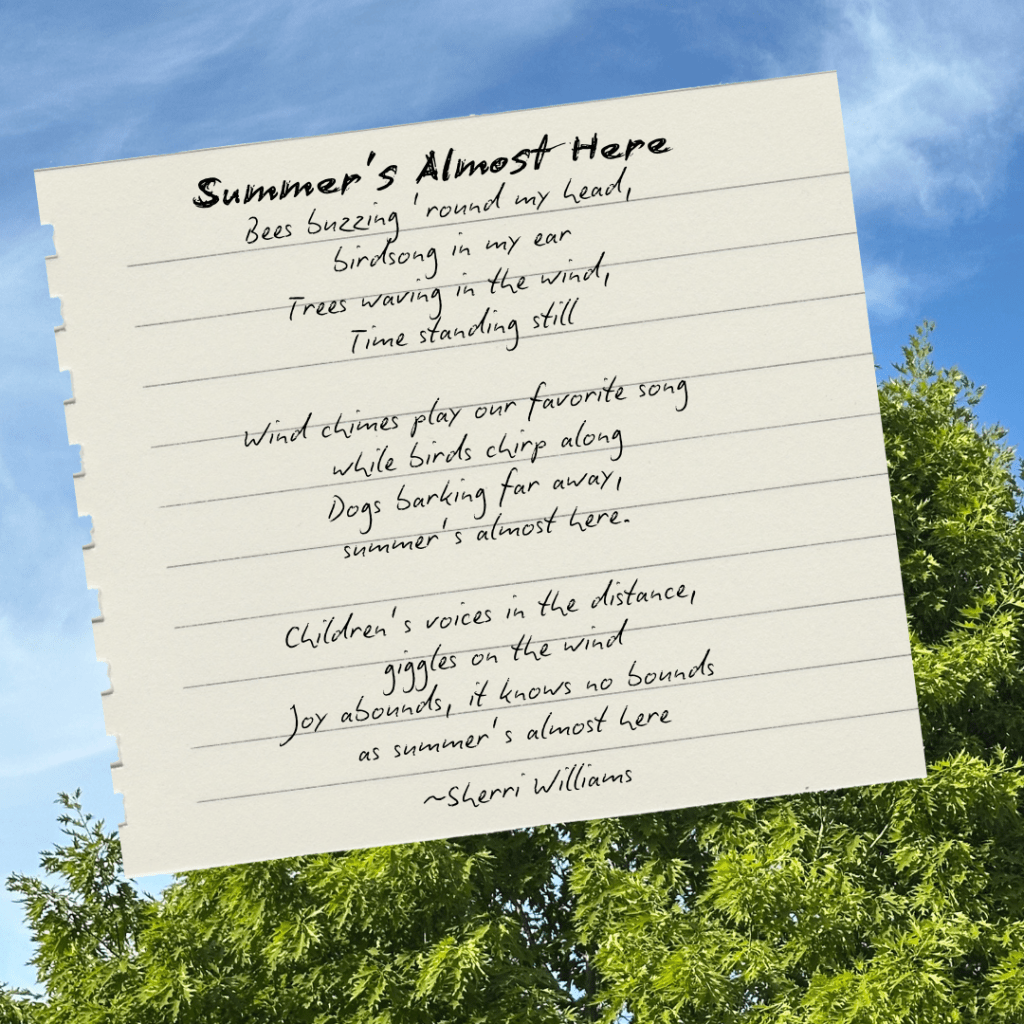 Summer's Almost Here
Bees buzzing 'round my head,
birdsong in my ear
Trees waving in the wind,
Time standing still
Wind chimes play our favorite song
while birds chirp along
Dogs barking far away,
summer's almost here.
Children's voices in the distance,
giggles on the wind
Joy abounds, it knows no bounds
as summer's almost here
~Sherri Williams